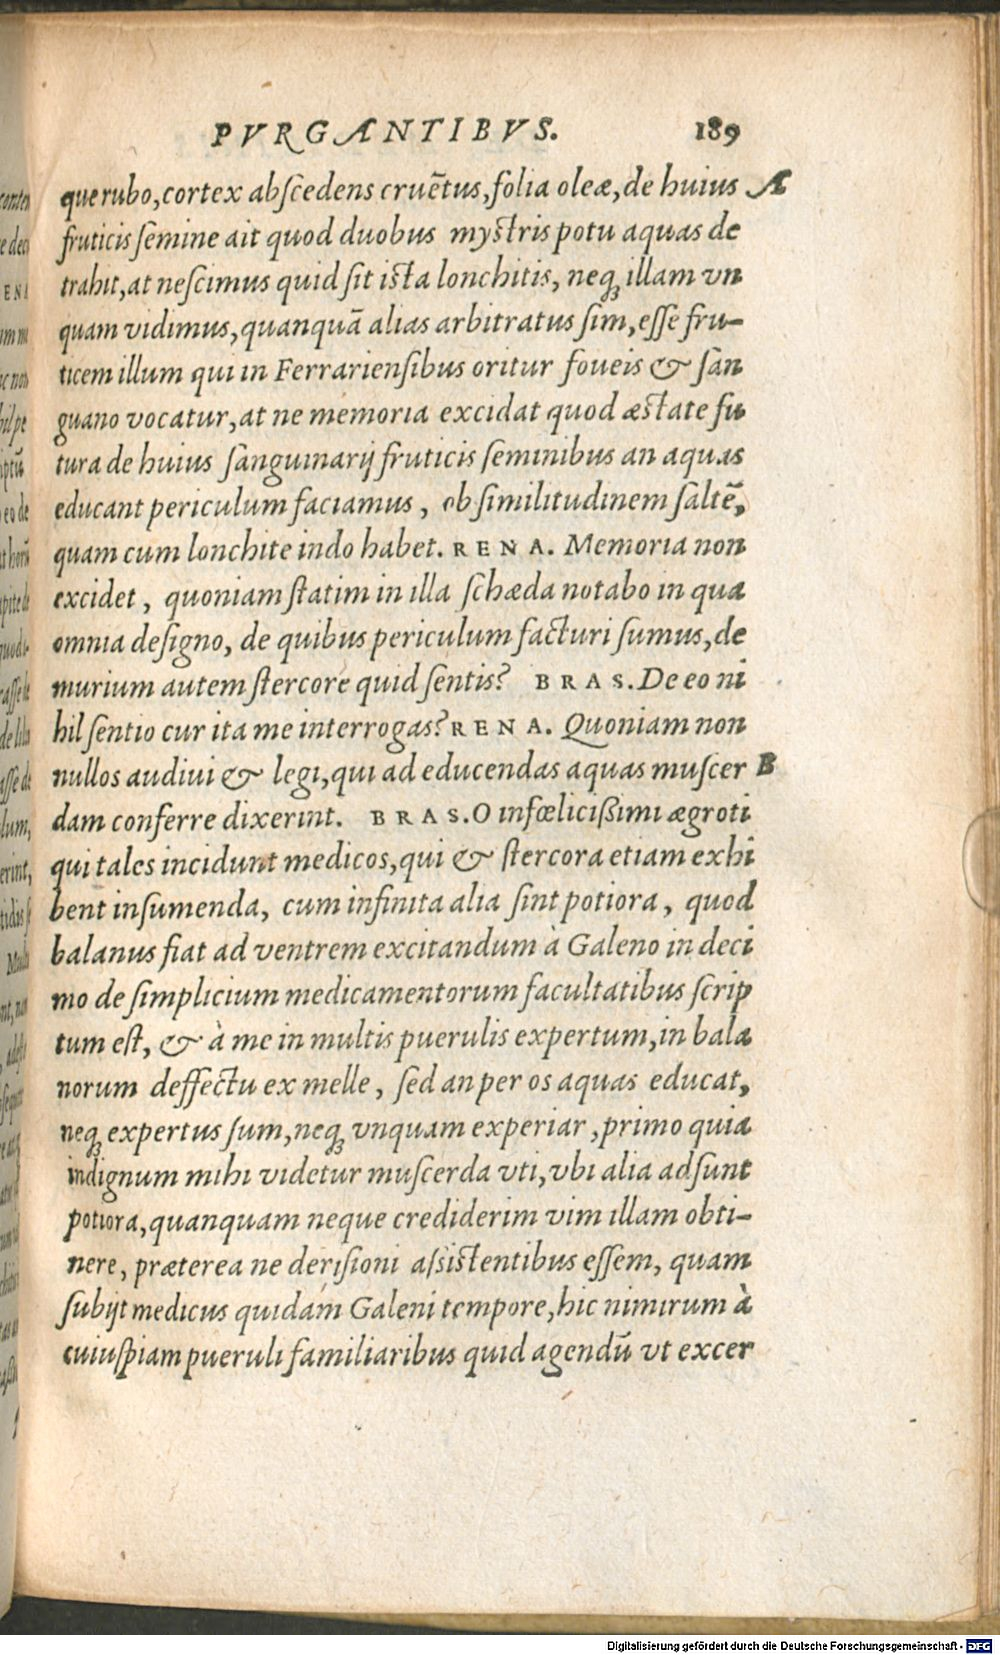 PVRGANTIBVS. 189
que rubo, cortex abſcedens cruẽtus, folia oleæ, de huius A
fruticis ſemine ait quod duobus myſtris potu aquas de
trahit, at neſcimus quid ſit iſta lonchitis, neqꝫ illam vn
quam vidimus, quanquã alias arbitratus ſim, eſſe fru-
ticem illum qui in Ferrarienſibus oritur foueis & ſan
guano vocatur, at ne memoria excidat quod æſtate fu
tura de huius ſanguinarij fruticis ſeminibus an aquas
educant periculum faciamus, ob ſimilitudinem ſaltẽ,
quam cum lonchite indo habet. RENA. Memoria non
excidet, quoniam ſtatim in illa ſchæda notabo in qua
omnia deſigno, de quibus periculum facturi ſumus, de
murium autem ſtercore quid ſentis? BRAS. De eo ni
hil ſentio cur ita me interrogas? RENA. Quoniam non
nullos audiui & legi, qui ad educendas aquas muſcer B
dam conferre dixerint. BRAS. O infœliciſsimi ægroti
qui tales incidunt medicos, qui & ſtercora etiam exhi
bent inſumenda, cum infinita alia ſint potiora, quod
balanus fiat ad ventrem excitandum à Galeno in deci
mo de ſimplicium medicamentorum facultatibus ſcrip
tum eſt, & à me in multis puerulis expertum, in bala
norum deffectu ex melle, ſed an per os aquas educat,
neqꝫ expertus ſum, neqꝫ vnquam experiar, primo quia
indignum mihi videtur muſcerda vti, vbi alia adſunt
potiora, quanquam neque crediderim vim illam obti-
nere, præterea ne deriſioni aſsiſtentibus eſſem, quam
ſubijt medicus quidam Galeni tempore, hic nimirum à
cuiuſpiam pueruli familiaribus quid agendũ vt excer
Digitalisierung gefördert durch die Deutsche Forschungsgemeinschaft - DFG